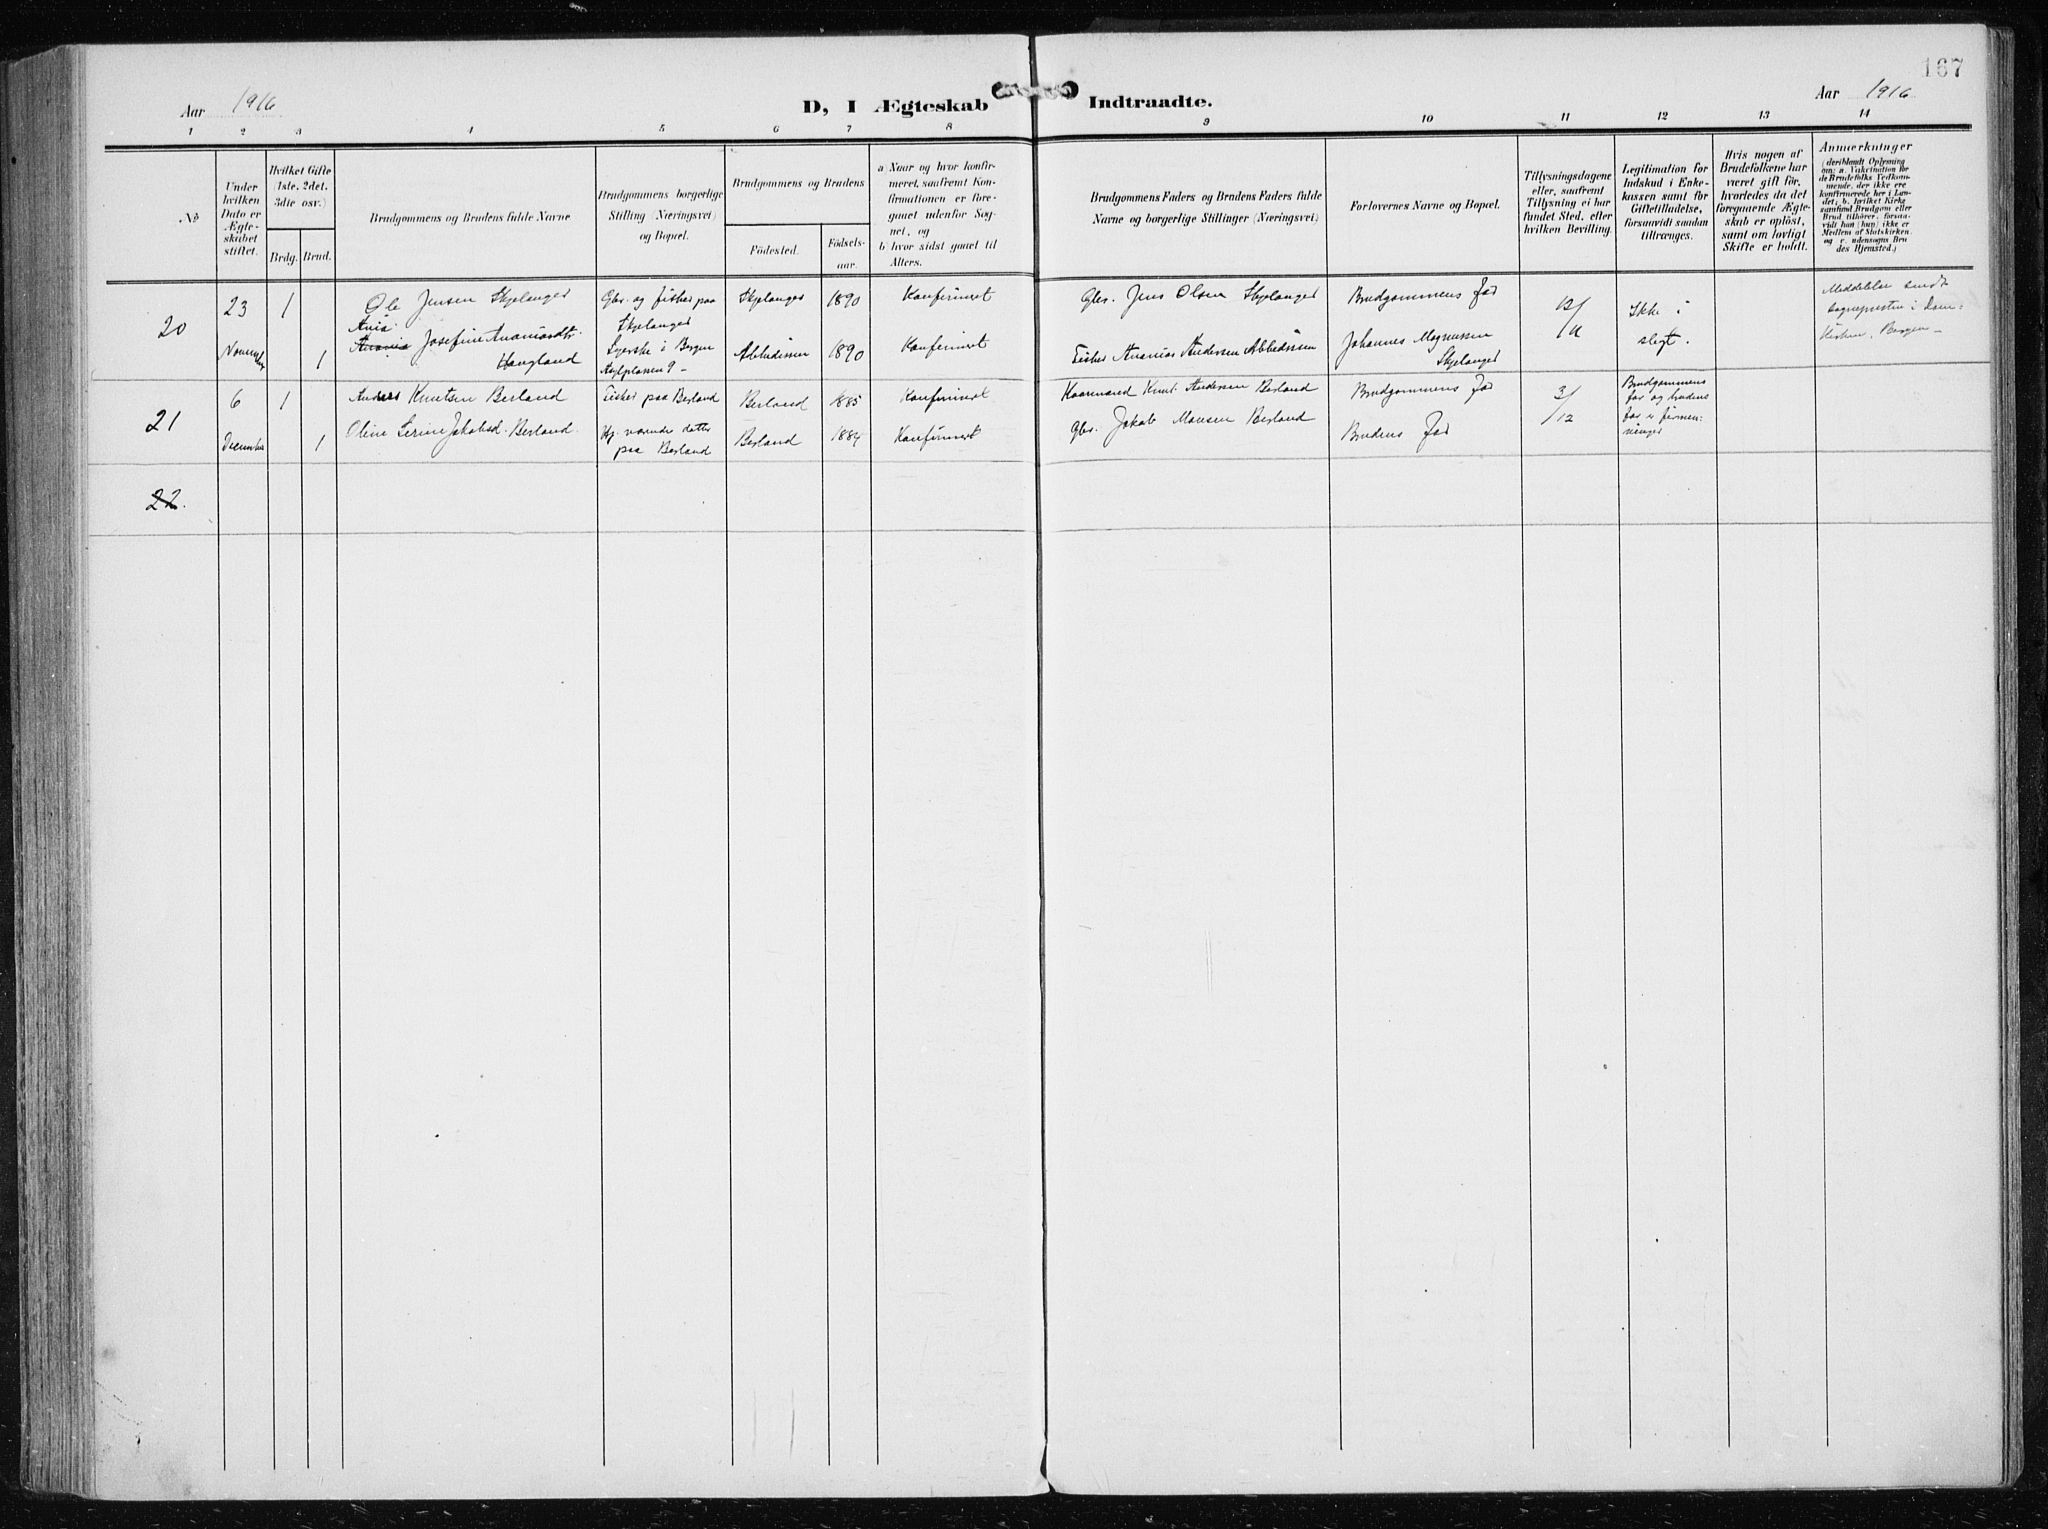 167
Aar 1916
D, I Ægteskab Indtraadte.
Aar 1916
1 2 3 4 5 6 7 8 9 10 11 12 13 14
No
Under
hvilken
Dato er
Ægte-
skabet
stiftet.
Hvilket Gifte
(1ste, 2det,
3die osv.)
Brdg. Brud.
Brudgommens og Brudens fulde Navne
Brudgommens borgerlige
Stilling (Næringsvei)
og Bopæl.
Brudgommens og Brudens
Födested.
Födsels-
aar.
a Naar og hvor konfir-
meret, saafremt Kon-
firmationen er fore-
gaaet udenfor Sog-
net, og
b hvor sidst gaaet til
Alters.
Brudgommens Faders og Brudens Faders fulde
Navne og borgerlige Stillinger (Næringsvei)
Forlovernes Navne og Bopæl.
Tillysningsdagene
eller, saafremt
Tillysning ei har
fundet Sted, efter
hvilken Bevilling.
Legitimation for
Indskud i Enke-
kassen samt for
Giftetilladelse,
forsaavidt saadan
tiltrænges.
Hvis nogen af
Brudefolkene har
været gift för,
hvorledes da det
foregaaende Ægte-
skab er oplöst,
samt om lovligt
Skifte er holdt.
Anmærkninger
(deriblandt Oplysning
om: a. Vakcination for
de Brudefolks Vedkom-
mende, der ikke ere
konfirmerede her i Lan-
det; b. hvilket Kirke-
samfund Brudgom eller
Brud tilhörer, forsaa-
vidt han (hun) ikke er
Medlem af Statskirken
og c. udensogns Bru-
des Hjemsted.)
20
23
November
1
1
Ole Jensen Skjelanger
Avia
Anania Josefine Ananiasdtr.
Haugland
Gbr. og fisker paa
Skjelanger
Syerske i Bergen
9 -
Skjelanger
1890
1890
Konfirmert
Konfirmert
Gbr. Jens Olsen Skjelanger
Fisker Ananias Andersen
Brudgommens far
Johannes Magnussen
Skjelanger
Ikke i
slegt.
Meddelelse sendt
sognepresten i Dom-
kirken, Bergen -
21
6
December
1
1
Anders Knutsen Berland
Oline Serine Jakobsd. Berland.
Fisker paa Berland
Hj. værende datter
paa Berland
Berland
1885
Berland
1884
Konfirmert
Konfirmert
Kaarmand Knut Andersen Berland
Gbr. Jakob Monsen Berland
Brudgommens far
Brudens far
3/
/12
Brudgommens
far og brudens
far er
22.